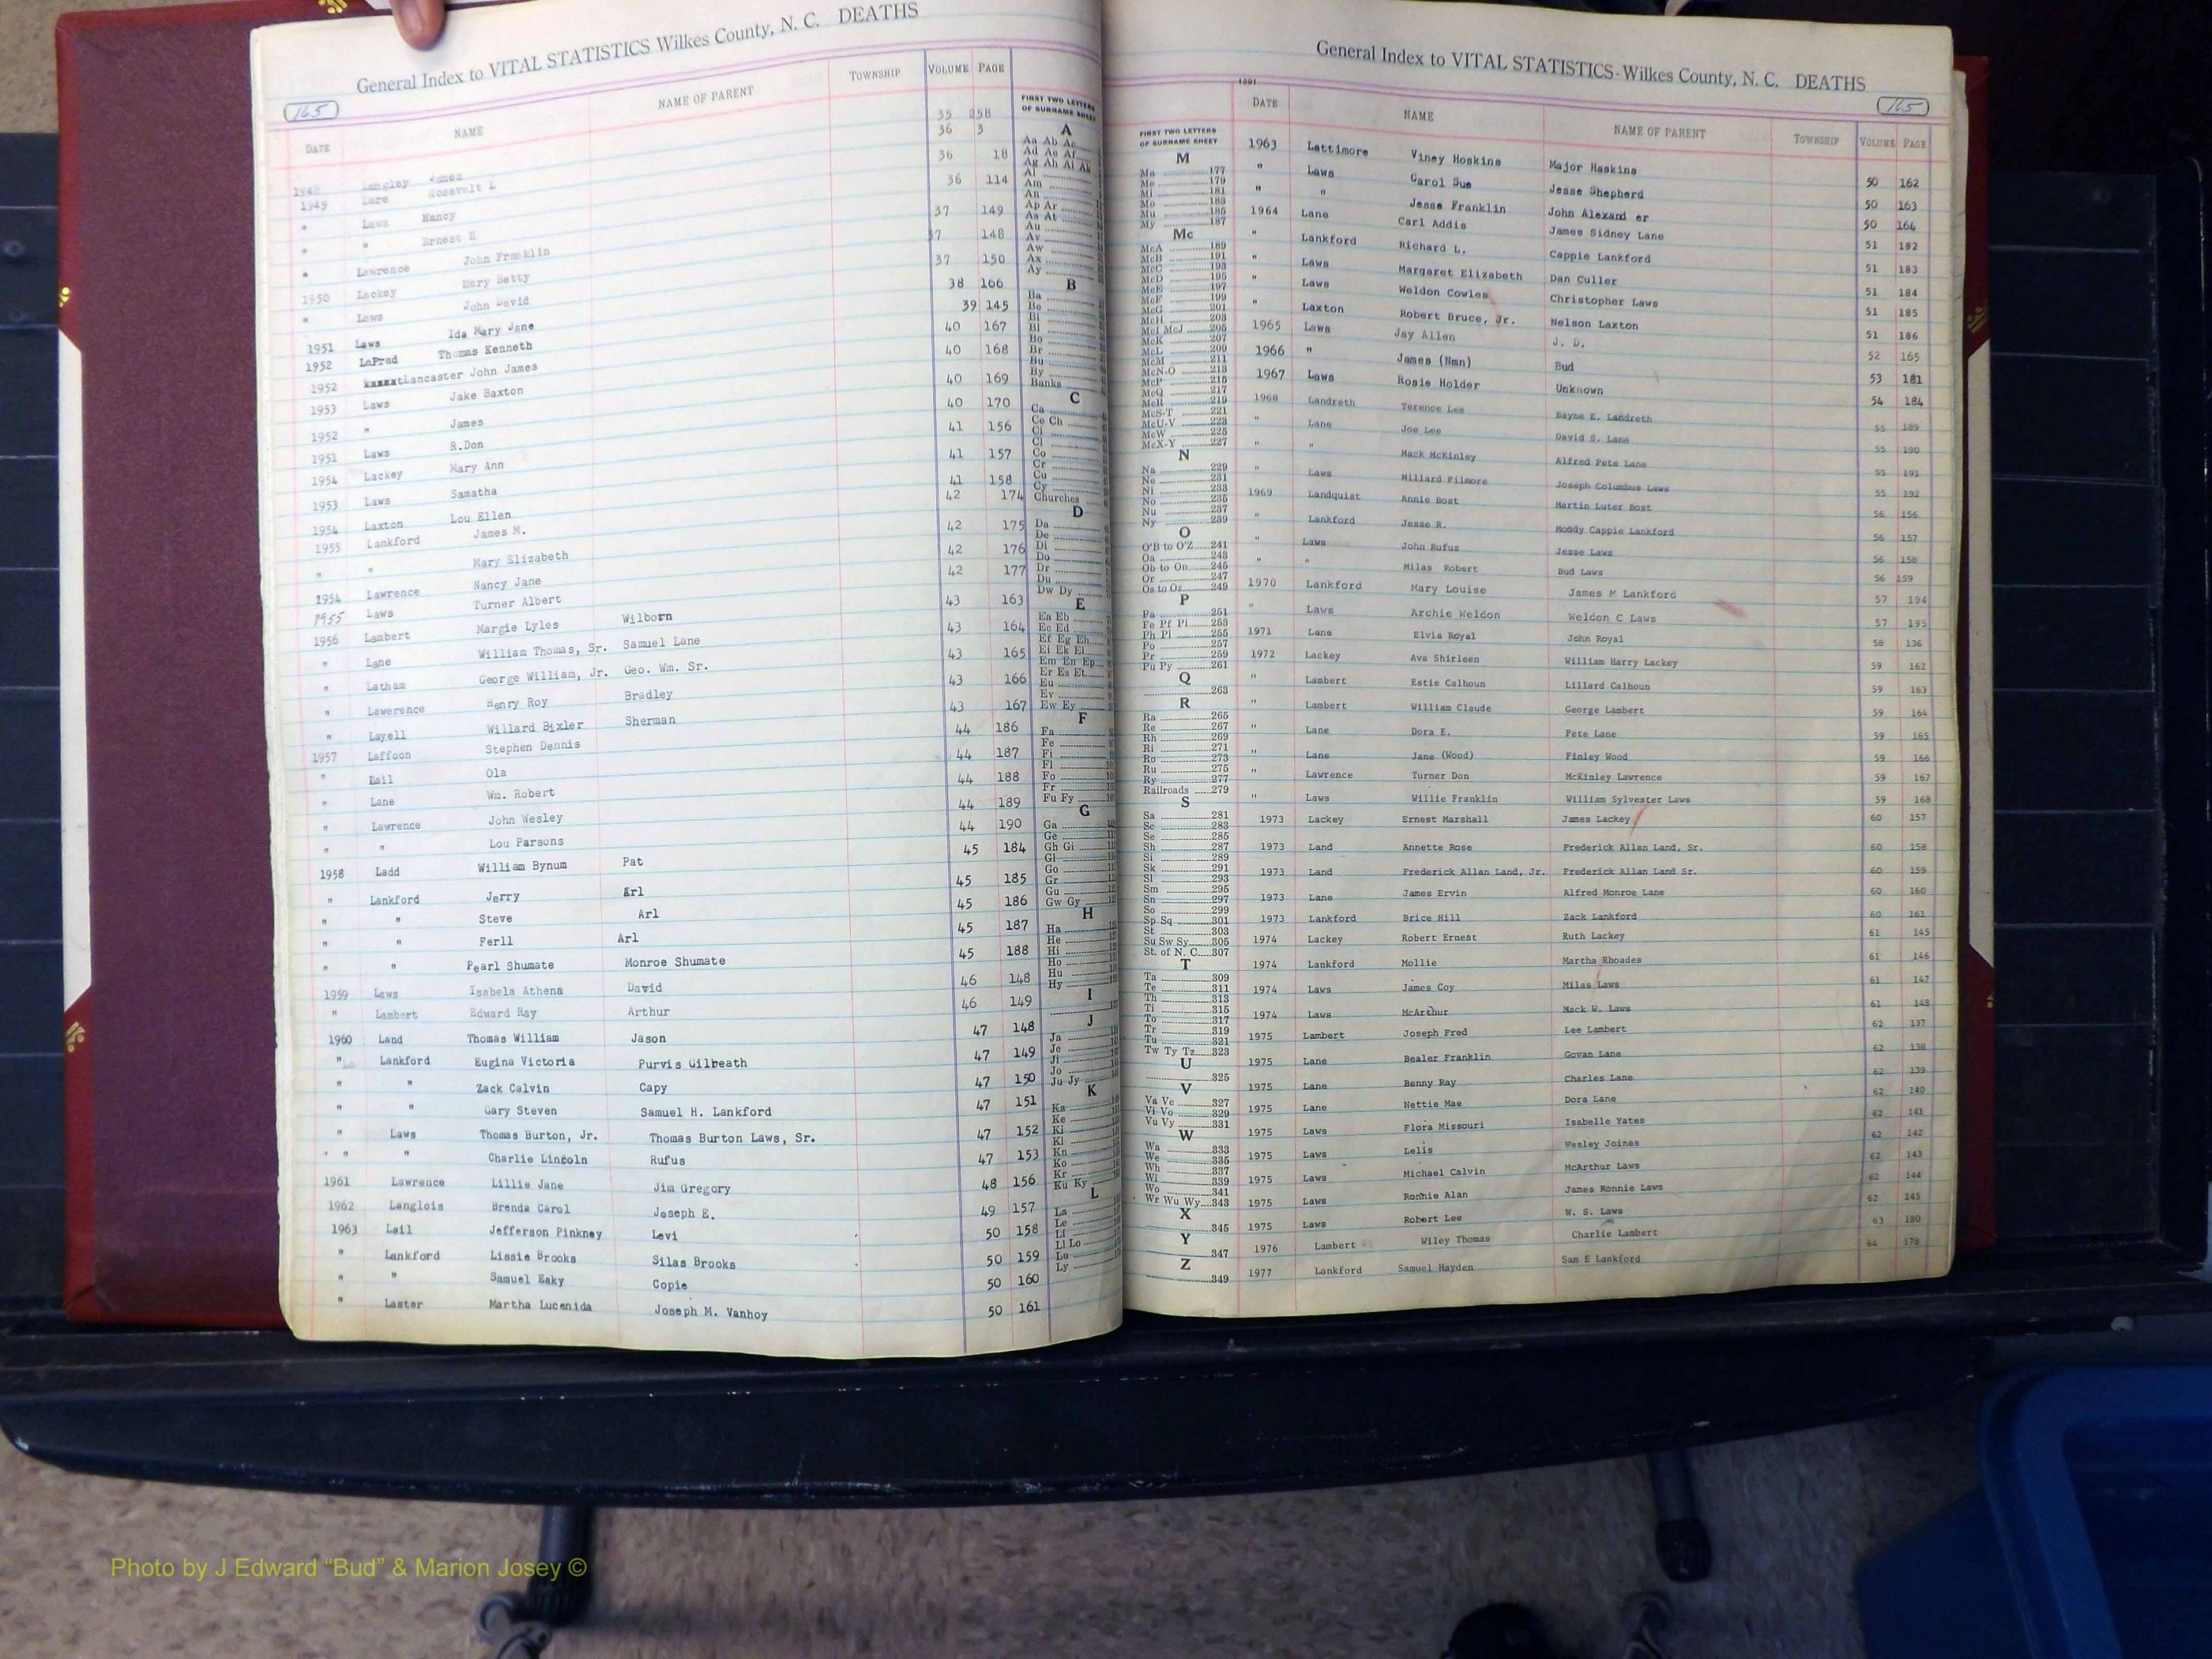 General Index to VITAL STATISTICS Wilkes County, N. C. DEATHS
165
DATE NAME NAME OF PARENT TOWNSHIP VOLUME PAGE
1948 Langley James 35 258
1949 Lare Rosevelt L 36 3
" Laws Nancy 36 18
" " Ernest E 36 114
" Lawrence John Franklin 37 149
1950 Lackey Mary Betty 37 148
" Laws John David 37 150
1951 Laws Ida Mary Jane 38 166
1952 LaPrad Thomas Kenneth 39 145
1952 Lancaster John James 40 167
1953 Laws Jake Baxton 40 168
1952 " James 40 169
1951 Laws R.Don 40 170
1954 Lackey Mary Ann 41 156
1953 Laws Samatha 41 157
1954 Laxton Lou Ellen 41 158
1955 Lankford James M. 42 174
" " Mary Elizabeth 42 175
1954 Lawrence Nancy Jane 42 176
1955 Laws Turner Albert 42 177
1956 Lambert Margie Lyles Wilborn 43 163
" Lane William Thomas, Sr. Samuel Lane 43 164
" Latham George William, Jr. Geo. Wm. Sr. 43 165
" Lawerence Henry Roy Bradley 43 166
" Layell Willard Bixler Sherman 43 167
1957 Laffoon Stephen Dennis 44 186
" Lail Ola 44 187
" Lane Wm. Robert 44 188
" Lawrence John Wesley 44 189
" " Lou Parsons 44 190
1958 Ladd William Bynum Pat 45 184
" Lankford Jerry Arl 45 185
" " Steve Arl 45 186
" " Ferll Arl 45 187
" " Pearl Shumate Monroe Shumate 45 188
1959 Laws Isabela Athena David 46 148
" Lambert Edward Ray Arthur 46 149
1960 Land Thomas William Jason 47 148
" Lankford Eugina Victoria Purvis Gilbeath 47 149
" " Zack Calvin Capy 47 150
" " Gary Steven Samuel H. Lankford 47 151
" Laws Thomas Burton, Jr. Thomas Burton Laws, Sr. 47 152
" " Charlie Lincoln Rufus 47 153
1961 Lawrence Lillie Jane Jim Gregory 48 156
1962 Langlois Brenda Carol Joseph E. 49 157
1963 Lail Jefferson Pinkney Levi 50 158
" Lankford Lissie Brooks Silas Brooks 50 159
" " Samuel Eaky Copie 50 160
" Laster Martha Lucenida Joseph M. Vanhoy 50 161
FIRST TWO LETTERS
OF SURNAME SHEET
A
Aa Ab Ac
Ad Ae Af
Ag Ah Ai Ak
Al
Am
An
Ap Ar
As At
Au
Av
Aw
Ax
Ay
B
Ba
Be
Bi
Bl
Bo
Br
Bu
By
Banks
C
Ca
Ce Ch
Ci
Cl
Co
Cr
Cu
Cy
Churches
D
Da
De
Di
Do
Dr
Du
Dw Dy
E
Ea Eb
Ec Ed
Ef Eg Eh
Ei Ek El
Em En Ep
Er Es Et
Eu
Ev
Ew Ey
F
Fa
Fe
Fi
Fl
Fo
Fr
Fu Fy
G
Ga
Ge
Gh Gi
Gl
Go
Gr
Gu
Gw Gy
H
Ha
He
Hi
Ho
Hu
Hy
I
J
Ja
Je
Ji
Jo
Ju Jy
K
Ka
Ke
Ki
Kl
Kn
Ko
Kr
Ku Ky
L
La
Le
Li
Ll Lo
Lu
Ly
General Index to VITAL STATISTICS-Wilkes County, N. C. DEATHS
165
1991
FIRST TWO LETTERS
OF SURNAME SHEET
M
Ma 177
Me 179
Mi 181
Mo 183
Mu 185
My 187
Mc
McA 189
McB 191
McC 193
McD 195
McE 197
McF 199
McG 201
McH 203
McI McJ 205
McK 207
McL 209
McM 211
McN-O 213
McP 215
McQ 217
McR 219
McS-T 221
McU-V 223
McW 225
McX-Y 227
N
Na 229
Ne 231
Ni 233
No 235
Nu 237
Ny 239
O
O'B to O'Z 241
Oa 243
Ob to On 245
Or 247
Os to Oz 249
P
Pa 251
Pe Pf Pi 253
Ph Pl 255
Po 257
Pr 259
Pu Py 261
Q
263
R
Ra 265
Re 267
Rh 269
Ri 271
Ro 273
Ru 275
Ry 277
Railroads 279
S
Sa 281
Sc 283
Se 285
Sh 287
Si 289
Sk 291
Sl 293
Sm 295
Sn 297
So 299
Sp Sq 301
St 303
Su Sw Sy 305
St. of N. C. 307
T
Ta 309
Te 311
Th 313
Ti 315
To 317
Tr 319
Tu 321
Tw Ty Tz 323
U
325
V
Va Ve 327
Vi Vo 329
Vu Vy 331
W
Wa 333
We 335
Wh 337
Wi 339
Wo 341
Wr Wu Wy 343
X
345
Y
347
Z
349
DATE NAME NAME OF PARENT TOWNSHIP VOLUME PAGE
1963 Lattimore Viney Hoskins Major Haskins 50 162
" Laws Carol Sue Jesse Shepherd 50 163
" " Jesse Franklin John Alexand er 50 164
1964 Lane Carl Addis James Sidney Lane 51 182
" Lankford Richard L. Cappie Lankford 51 183
" Laws Margaret Elizabeth Dan Culler 51 184
" Laws Weldon Cowles Christopher Laws 51 185
" Laxton Robert Bruce, Jr. Nelson Laxton 51 186
1965 Laws Jay Allen J. D. 52 165
1966 " James (Nmn) Bud 53 181
1967 Laws Rosie Holder Unknown 54 184
1968 Landreth Terence Lee Bayne E. Landreth 55 189
" Lane Joe Lee David S. Lane 55 190
" " Mack McKinley Alfred Pete Lane 55 191
" Laws Millard Filmore Joseph Columbus Laws 55 192
1969 Landquist Annie Bost Martin Luter Bost 56 156
" Lankford Jesse R. Moody Cappie Lankford 56 157
" Laws John Rufus Jesse Laws 56 158
" " Milas Robert Bud Laws 56 159
1970 Lankford Mary Louise James M Lankford 57 194
" Laws Archie Weldon Weldon C Laws 57 195
1971 Lane Elvia Royal John Royal 58 136
1972 Lackey Ava Shirleen William Harry Lackey 59 162
" Lambert Estie Calhoun Lillard Calhoun 59 163
" Lambert William Claude George Lambert 59 164
" Lane Dora E. Pete Lane 59 165
" Lane Jane (Wood) Finley Wood 59 166
" Lawrence Turner Don McKinley Lawrence 59 167
" Laws Willie Franklin William Sylvester Laws 59 168
1973 Lackey Ernest Marshall James Lackey 60 157
1973 Land Annette Rose Frederick Allan Land, Sr. 60 158
1973 Land Frederick Allan Land, Jr. Frederick Allan Land Sr. 60 159
1973 Lane James Ervin Alfred Monroe Lane 60 160
1973 Lankford Brice Hill Zack Lankford 60 161
1974 Lackey Robert Ernest Ruth Lackey 61 145
1974 Lankford Mollie Martha Rhoades 61 146
1974 Laws James Coy Milas Laws 61 147
1974 Laws McArthur Mack W. Laws 61 148
1975 Lambert Joseph Fred Lee Lambert 62 137
1975 Lane Bealer Franklin Govan Lane 62 138
1975 Lane Benny Ray Charles Lane 62 139
1975 Lane Nettie Mae Dora Lane 62 140
1975 Laws Flora Missouri Isabelle Yates 62 141
1975 Laws Lelis Wesley Joines 62 142
1975 Laws Michael Calvin McArthur Laws 62 143
1975 Laws Ronnie Alan James Ronnie Laws 62 144
1975 Laws Robert Lee W. S. Laws 62 145
1976 Lambert Wiley Thomas Charlie Lambert 63 180
1977 Lankford Samuel Hayden Sam E Lankford 64 178
Photo by J Edward “Bud” & Marion Josey ©